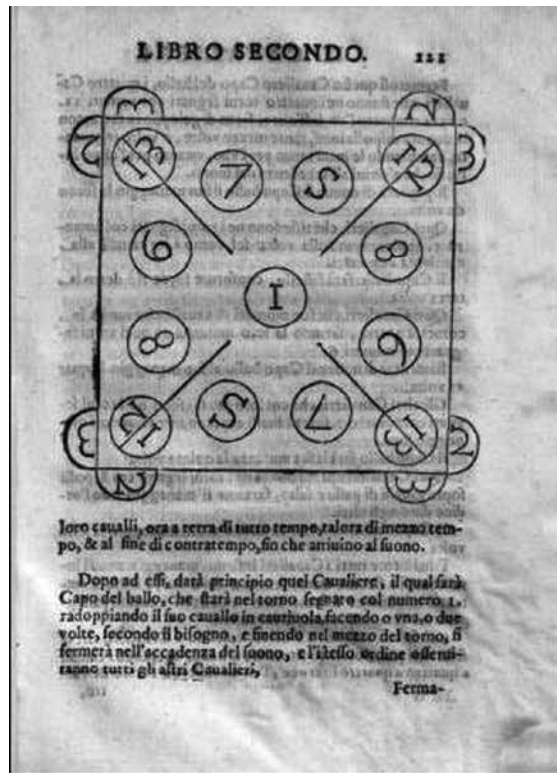 LIBRO SECONDO. 121
3 2
2 13 7 5 12 3
9 8
1
8 6
3 12 5 7 13 2
2 3
loro caualli, ora a terra di tutto tempo, talora di mezzo tem-
po, & al fine di contratempo, fin che arriuino al suono.
Dopo ad essi, darà principo quel Caualiere, il qual sarà
Capo del ballo, che starà nel torno segnato col numero 1.
radoppiando il suo cauallo in capriuola, facendo o vna, o due
volte, secondo il bisogno, e finendo nel mezzo del torno, si
fermerà nell'accadenza del suono, e l'istesso ordine osserui-
ranno tutti gli altri Caualieri,
Ferma-